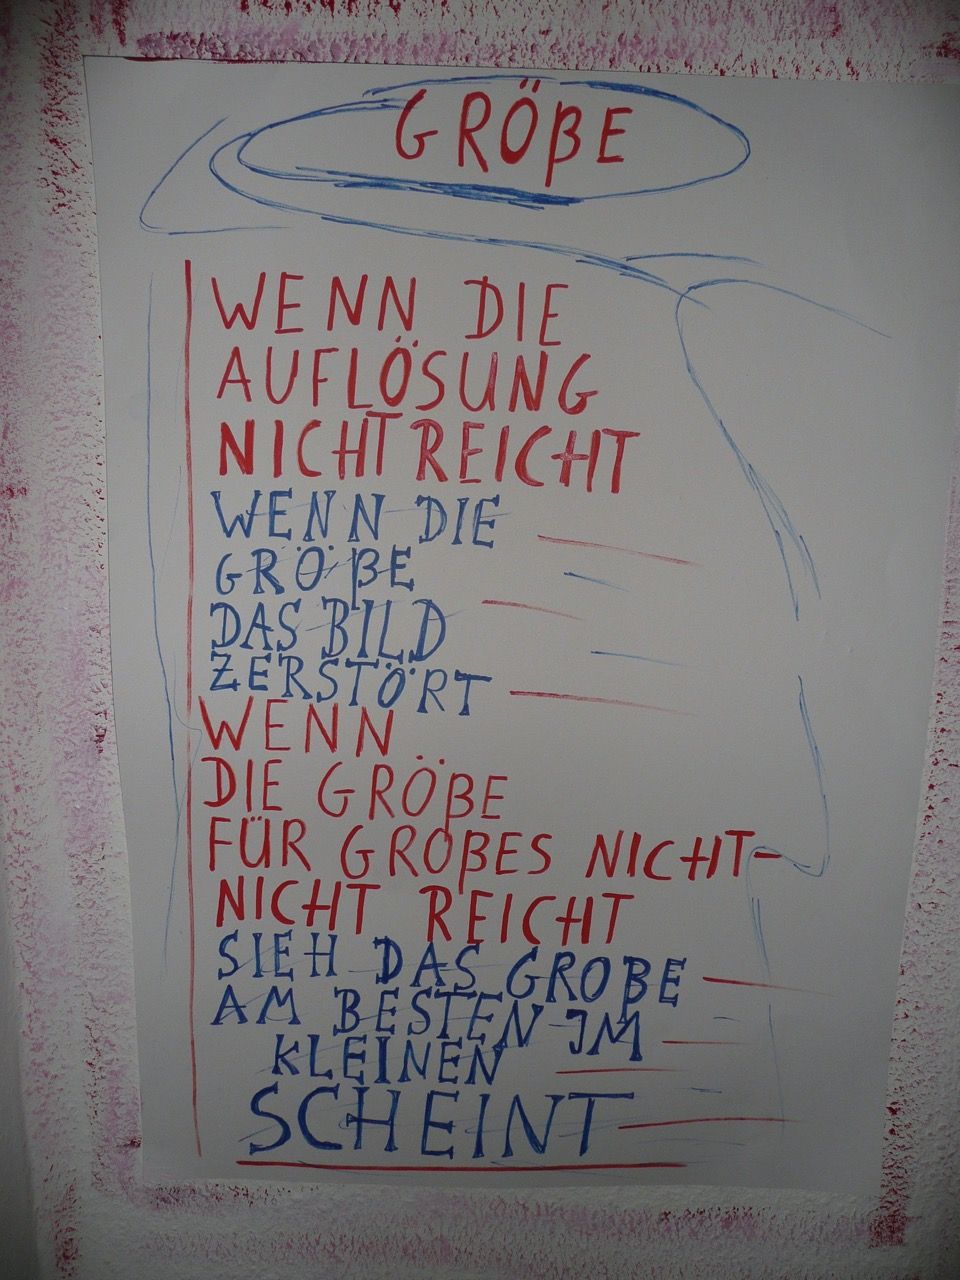 GRÖßE
WENN DIE
AUFLÖSUNG
NICHT REICHT
WENN DIE
GRÖßE
DAS BILD
ZERSTÖRT
WENN
DIE GRÖßE
FÜR GROßES NICHT-
NICHT REICHT
SIEH DAS GROßE
AM BESTEN IM
KLEINEN
SCHEINT